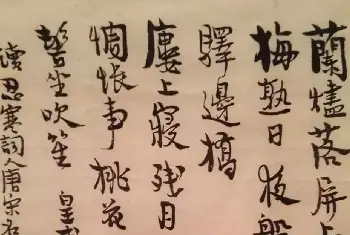 蘭燼落屏上
梅熟日夜船
驛邊橋
樓上寢残月
惆悵事桃花
髻坐吹笙 皇甫
讀忍寒詞人唐宋名